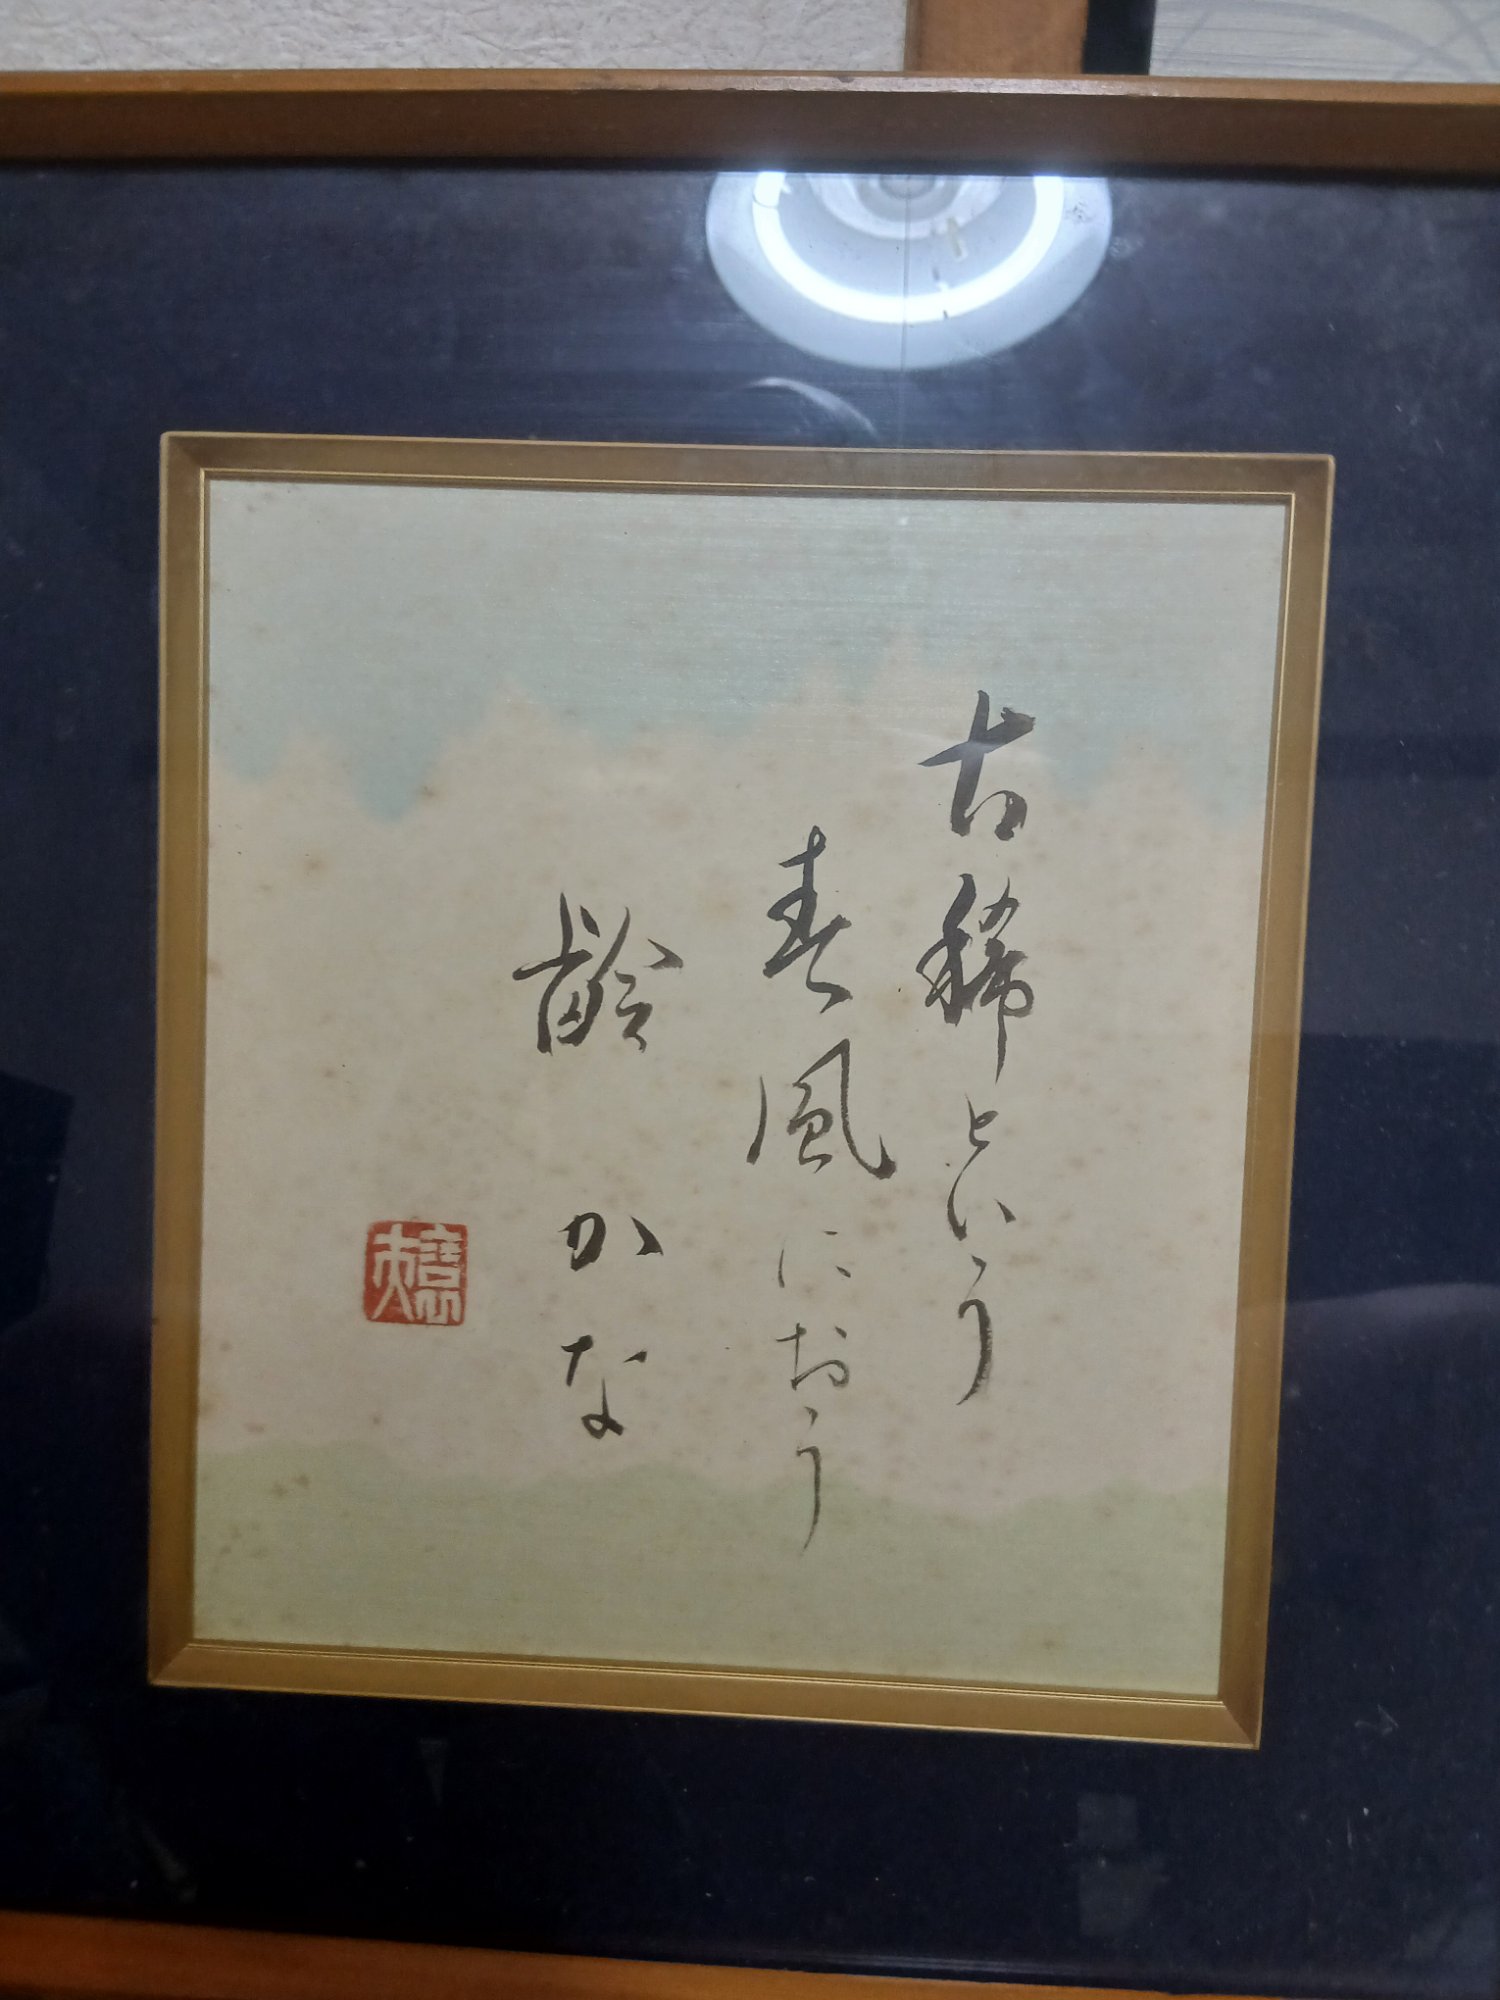 古稀という
春風におう
齢かな